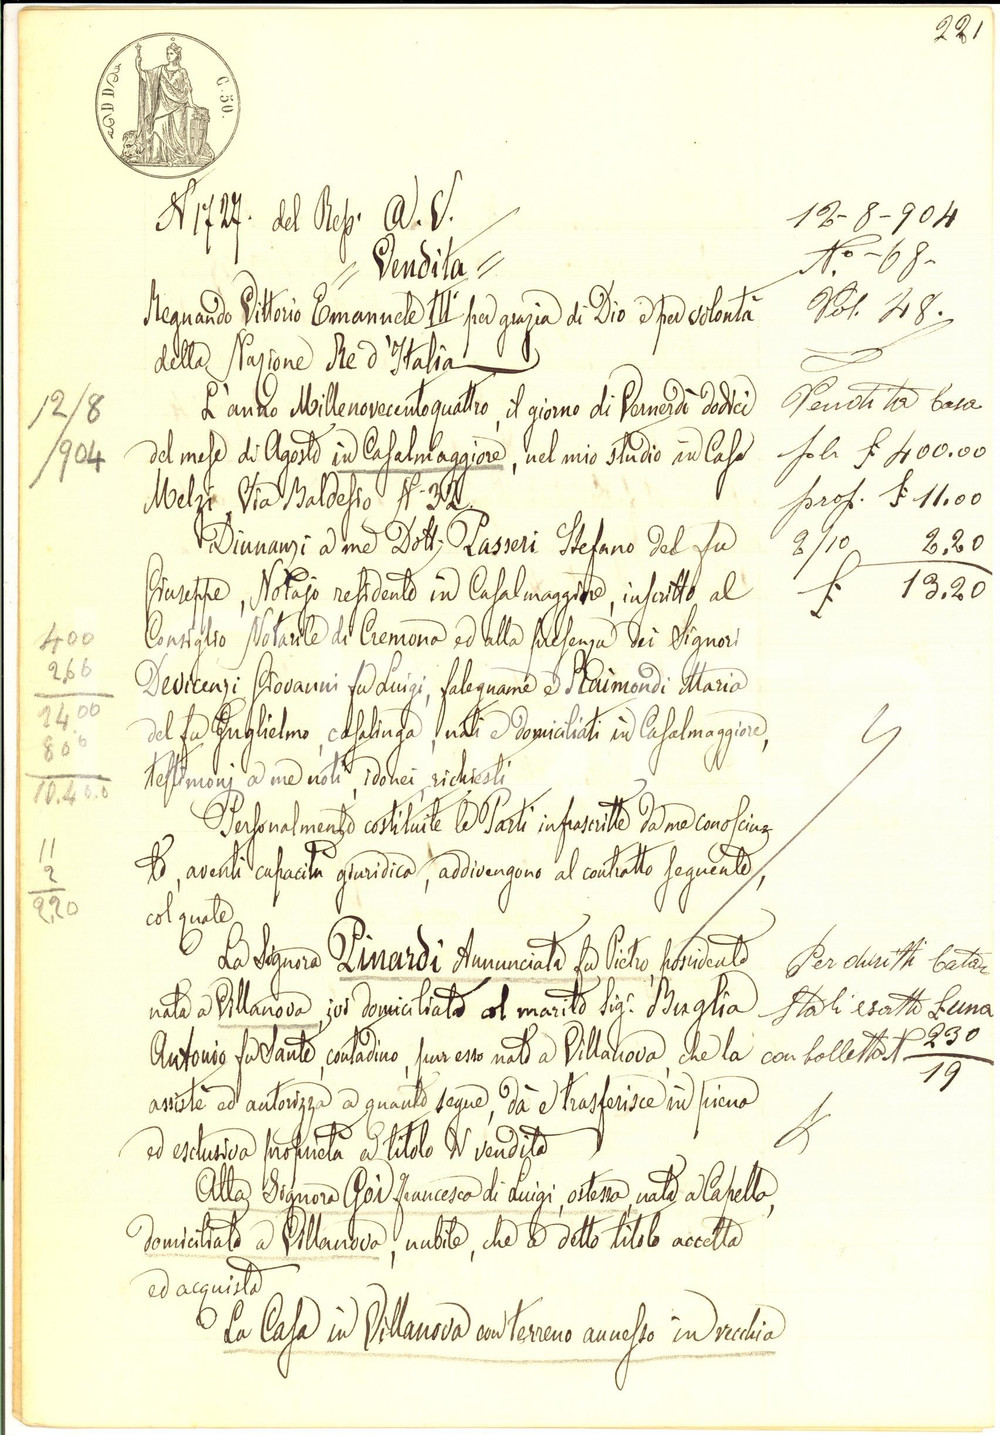 221
C. 50.
N 1727. del Rep. A. V.
Vendita
Regnando Vittorio Emanuele III per grazia di Dio e per volontà
della Nazione Re d'Italia
L'anno Millenovecentoquattro, il giorno di Venerdì dodici
del mese di Agosto in Casalmaggiore, nel mio studio in Casa
Melzi Via Baldesio N. 32.
Dinnanzi a me Dott. Passeri Stefano del fu
Giuseppe, Notajo residente in Casalmaggiore, inscritto al
Consiglio Notarile di Cremona ed alla presenza dei Signori
Devicenzi Giovanni fu Luigi, falegname e Raimondi Maria
del fu Guglielmo, casalinga, nati e domiciliati in Casalmaggiore,
testimonj a me noti, idonei, richiesti
Personalmente costituite le Parti infrascritte da me conosciu=
te, aventi capacità giuridica, addivengono al contratto seguente,
col quale
La Signora Pinardi Annunciata fu Pietro, possidente
nata a Villanova, ivi domiciliata col marito Sig. Buglia
Antonio fu Sante, contadino, pur esso nato a Villanova, che la
assiste ed autorizza a quanto segue, dà e trasferisce in piena
ed esclusiva proprietà a titolo di vendita
Alla Signora Goi Francesca di Luigi, ostessa, nata a Capella,
domiciliata a Villanova, nubile, che a detto titolo accetta
ed acquista
La Casa in Villanova con terreno annesso in vecchia
12-8-904
N.º -68-
Vol. 48.
Vendita Casa
per £ 400.00
prop. £ 11.00
2/10 2.20
£ 13.20
Per diritti Catas
tali esatte Luna
con bolletta N 230
19
12/8
/904
400
2.66
24.00
800
10.400
11
2
2.20